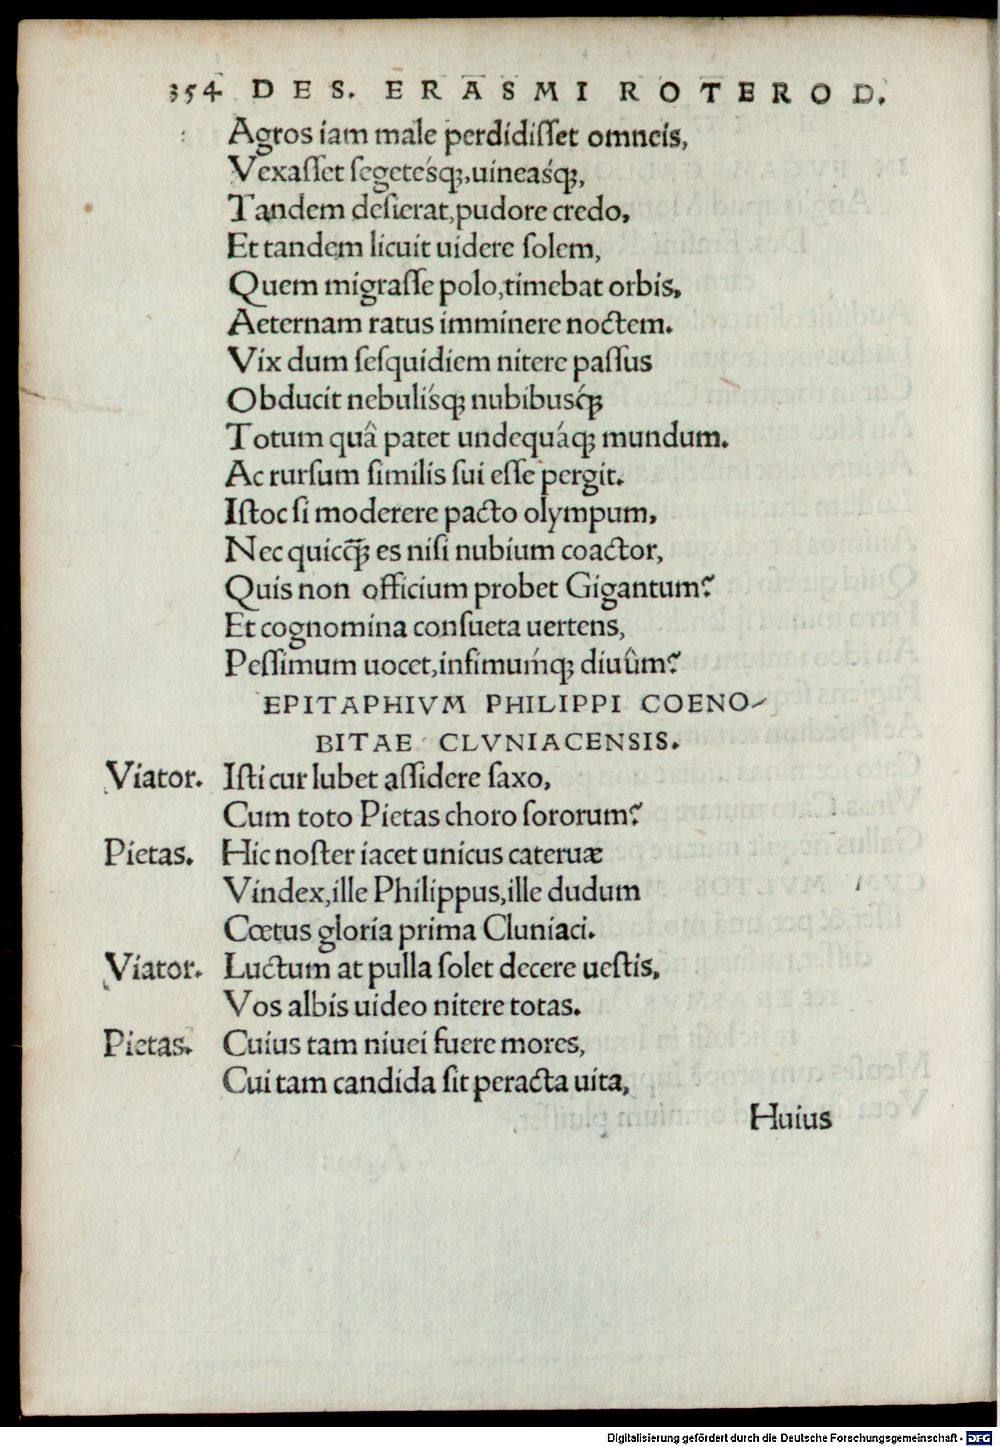 354 DES. ERASMI ROTEROD.
Agros iam male perdidiſſet omneis,
Vexaſſet ſegeteśq;,uineaśq;,
Tandem deſierat,pudore credo,
Et tandem licuit uidere ſolem,
Quem migraſſe polo,timebat orbis,
Aeternam ratus imminere noctem.
Vix dum ſeſquidiem nitere paſſus
Obducit nebuliśq; nubibuśq;
Totum quâ patet undequáq; mundum.
Ac rurſum ſimilis ſui eſſe pergit.
Iſtoc ſi moderere pacto olympum,
Nec quicq̃; es niſi nubium coactor,
Quis non officium probet Gigantum?
Et cognomina conſueta uertens,
Peſſimum uocet,infimuḿq; diuûm?
EPITAPHIVM PHILIPPI COENO-
BITAE CLVNIACENSIS.
Viator. Iſti cur lubet aſſidere ſaxo,
Cum toto Pietas choro ſororum?
Pietas. Hic noſter iacet unicus cateruæ
Vindex,ille Philippus,ille dudum
Cœtus gloria prima Cluniaci.
Viator. Luctum at pulla ſolet decere ueſtis,
Vos albis uideo nitere totas.
Pietas. Cuius tam niuei fuere mores,
Cui tam candida ſit peracta uita,
Huius
Digitalisierung gefördert durch die Deutsche Forschungsgemeinschaft - DFG